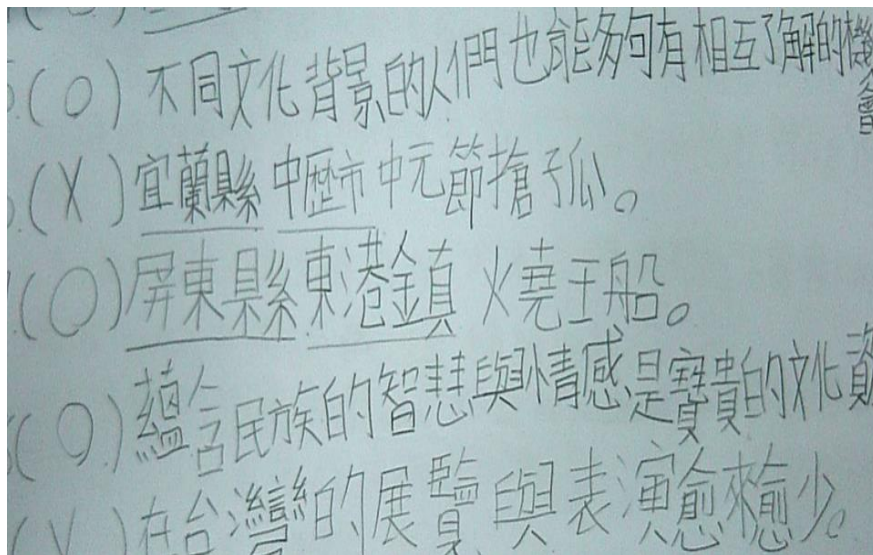 (O)不同文化背景的人們也能夠有相互了解的機會
(X)宜蘭縣中壢市中元節搶孤。
(O)屏東縣東港鎮 燒王船。
(O)蘊含民族的智慧與情感是寶貴的文化資
在台灣的展覽與表演愈來愈少。